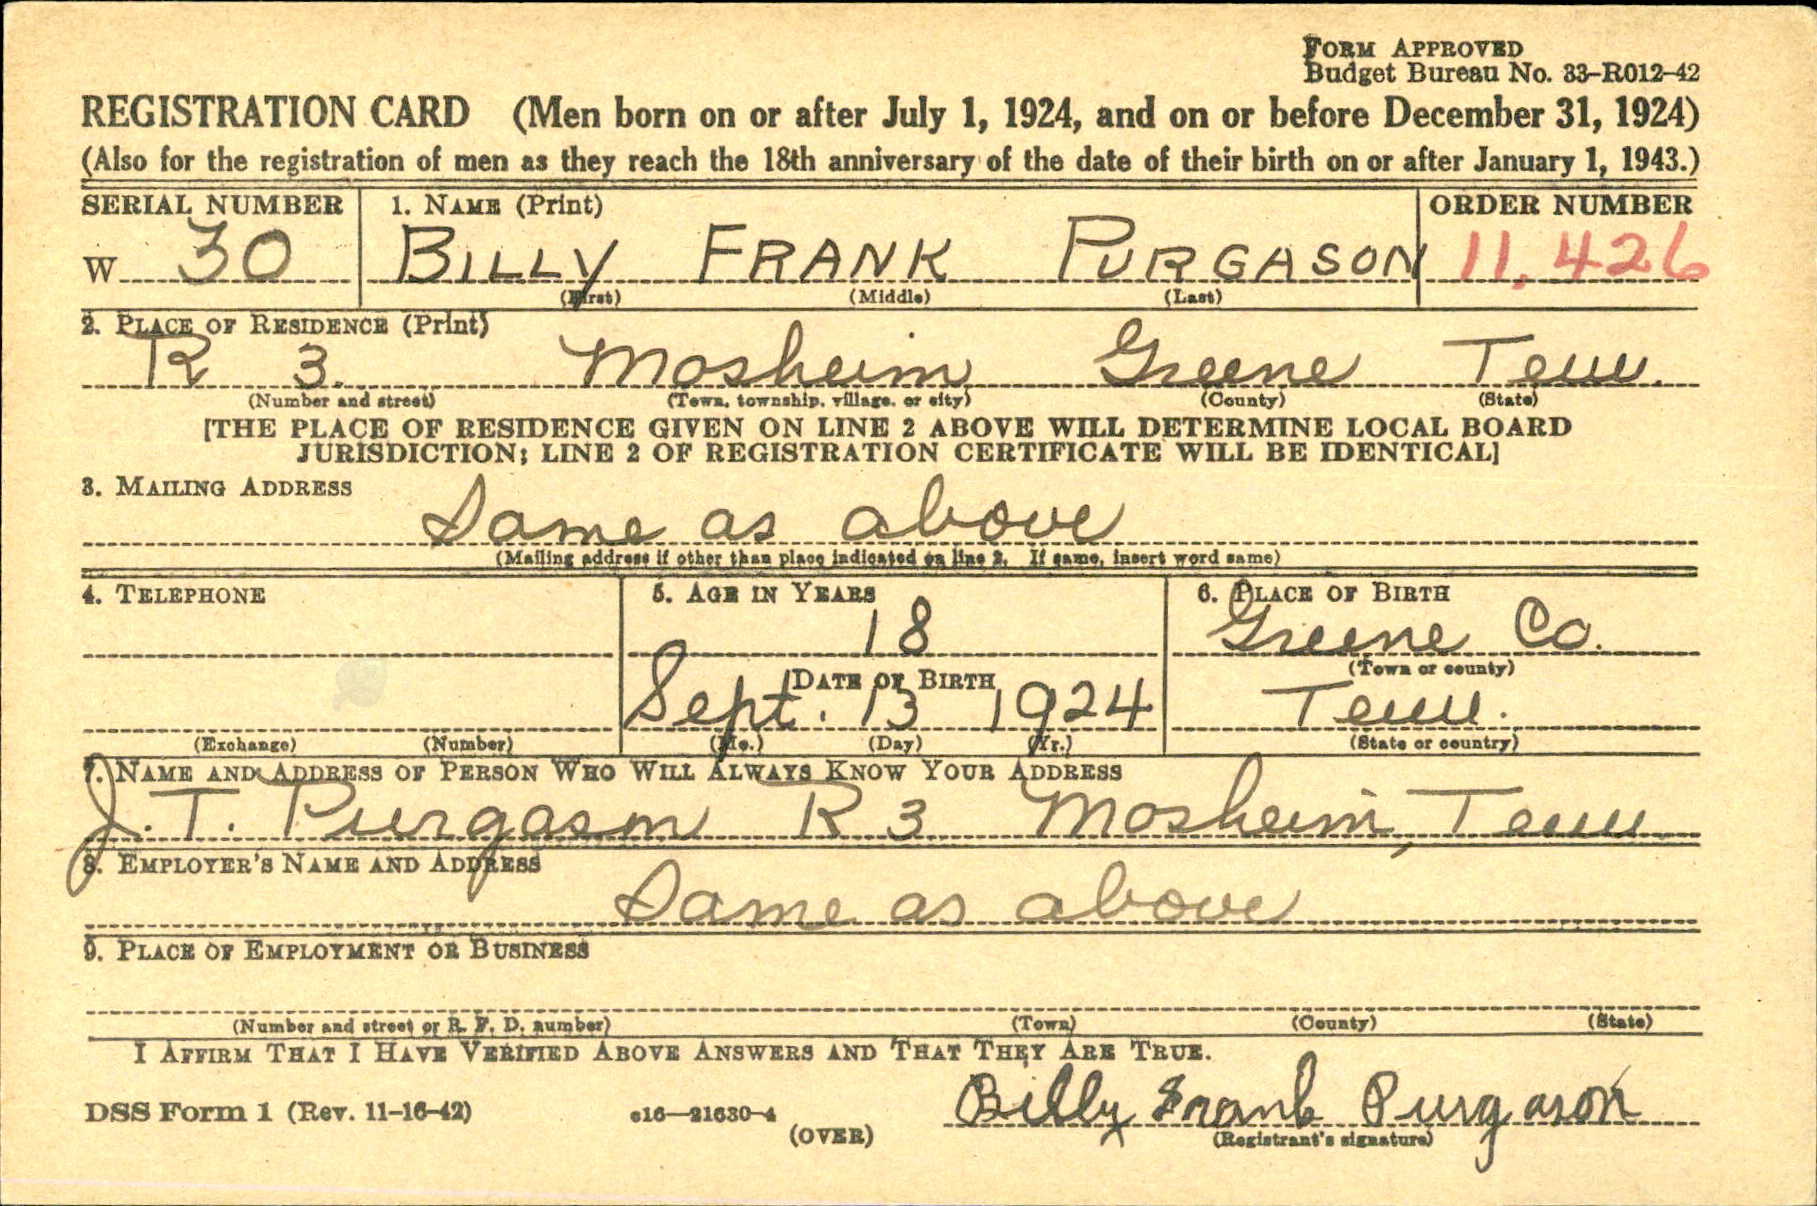 FORM APPROVED
Budget Bureau No. 33-R012-42
REGISTRATION CARD (Men born on or after July 1, 1924, and on or before December 31, 1924)
(Also for the registration of men as they reach the 18th anniversary of the date of their birth on or after January 1, 1943.)
SERIAL NUMBER 1. NAME (Print) ORDER NUMBER
W 30 BILLY FRANK PURGASON 11,426
(First) (Middle) (Last)
2. PLACE OF RESIDENCE (Print)
R 3. Mosheim Greene Tenn.
(Number and street) (Town, township, village, or city) (County) (State)
[THE PLACE OF RESIDENCE GIVEN ON LINE 2 ABOVE WILL DETERMINE LOCAL BOARD
JURISDICTION; LINE 2 OF REGISTRATION CERTIFICATE WILL BE IDENTICAL]
3. MAILING ADDRESS
Same as above
(Mailing address if other than place indicated on line 2. If same, insert word same)
4. TELEPHONE 5. AGE IN YEARS 6. PLACE OF BIRTH
18 Greene Co.
(Town or county)
DATE OF BIRTH
Sept. 13 1924 Tenn.
(Exchange) (Number) (Mo.) (Day) (Yr.) (State or country)
7. NAME AND ADDRESS OF PERSON WHO WILL ALWAYS KNOW YOUR ADDRESS
J. T. Purgason R 3 Mosheim, Tenn.
8. EMPLOYER'S NAME AND ADDRESS
Same as above
9. PLACE OF EMPLOYMENT OR BUSINESS
(Number and street or R. F. D. number) (Town) (County) (State)
I AFFIRM THAT I HAVE VERIFIED ABOVE ANSWERS AND THAT THEY ARE TRUE.
DSS Form 1 (Rev. 11-16-42) c16—21630-4 Billy Frank Purgason
(OVER) (Registrant's signature)